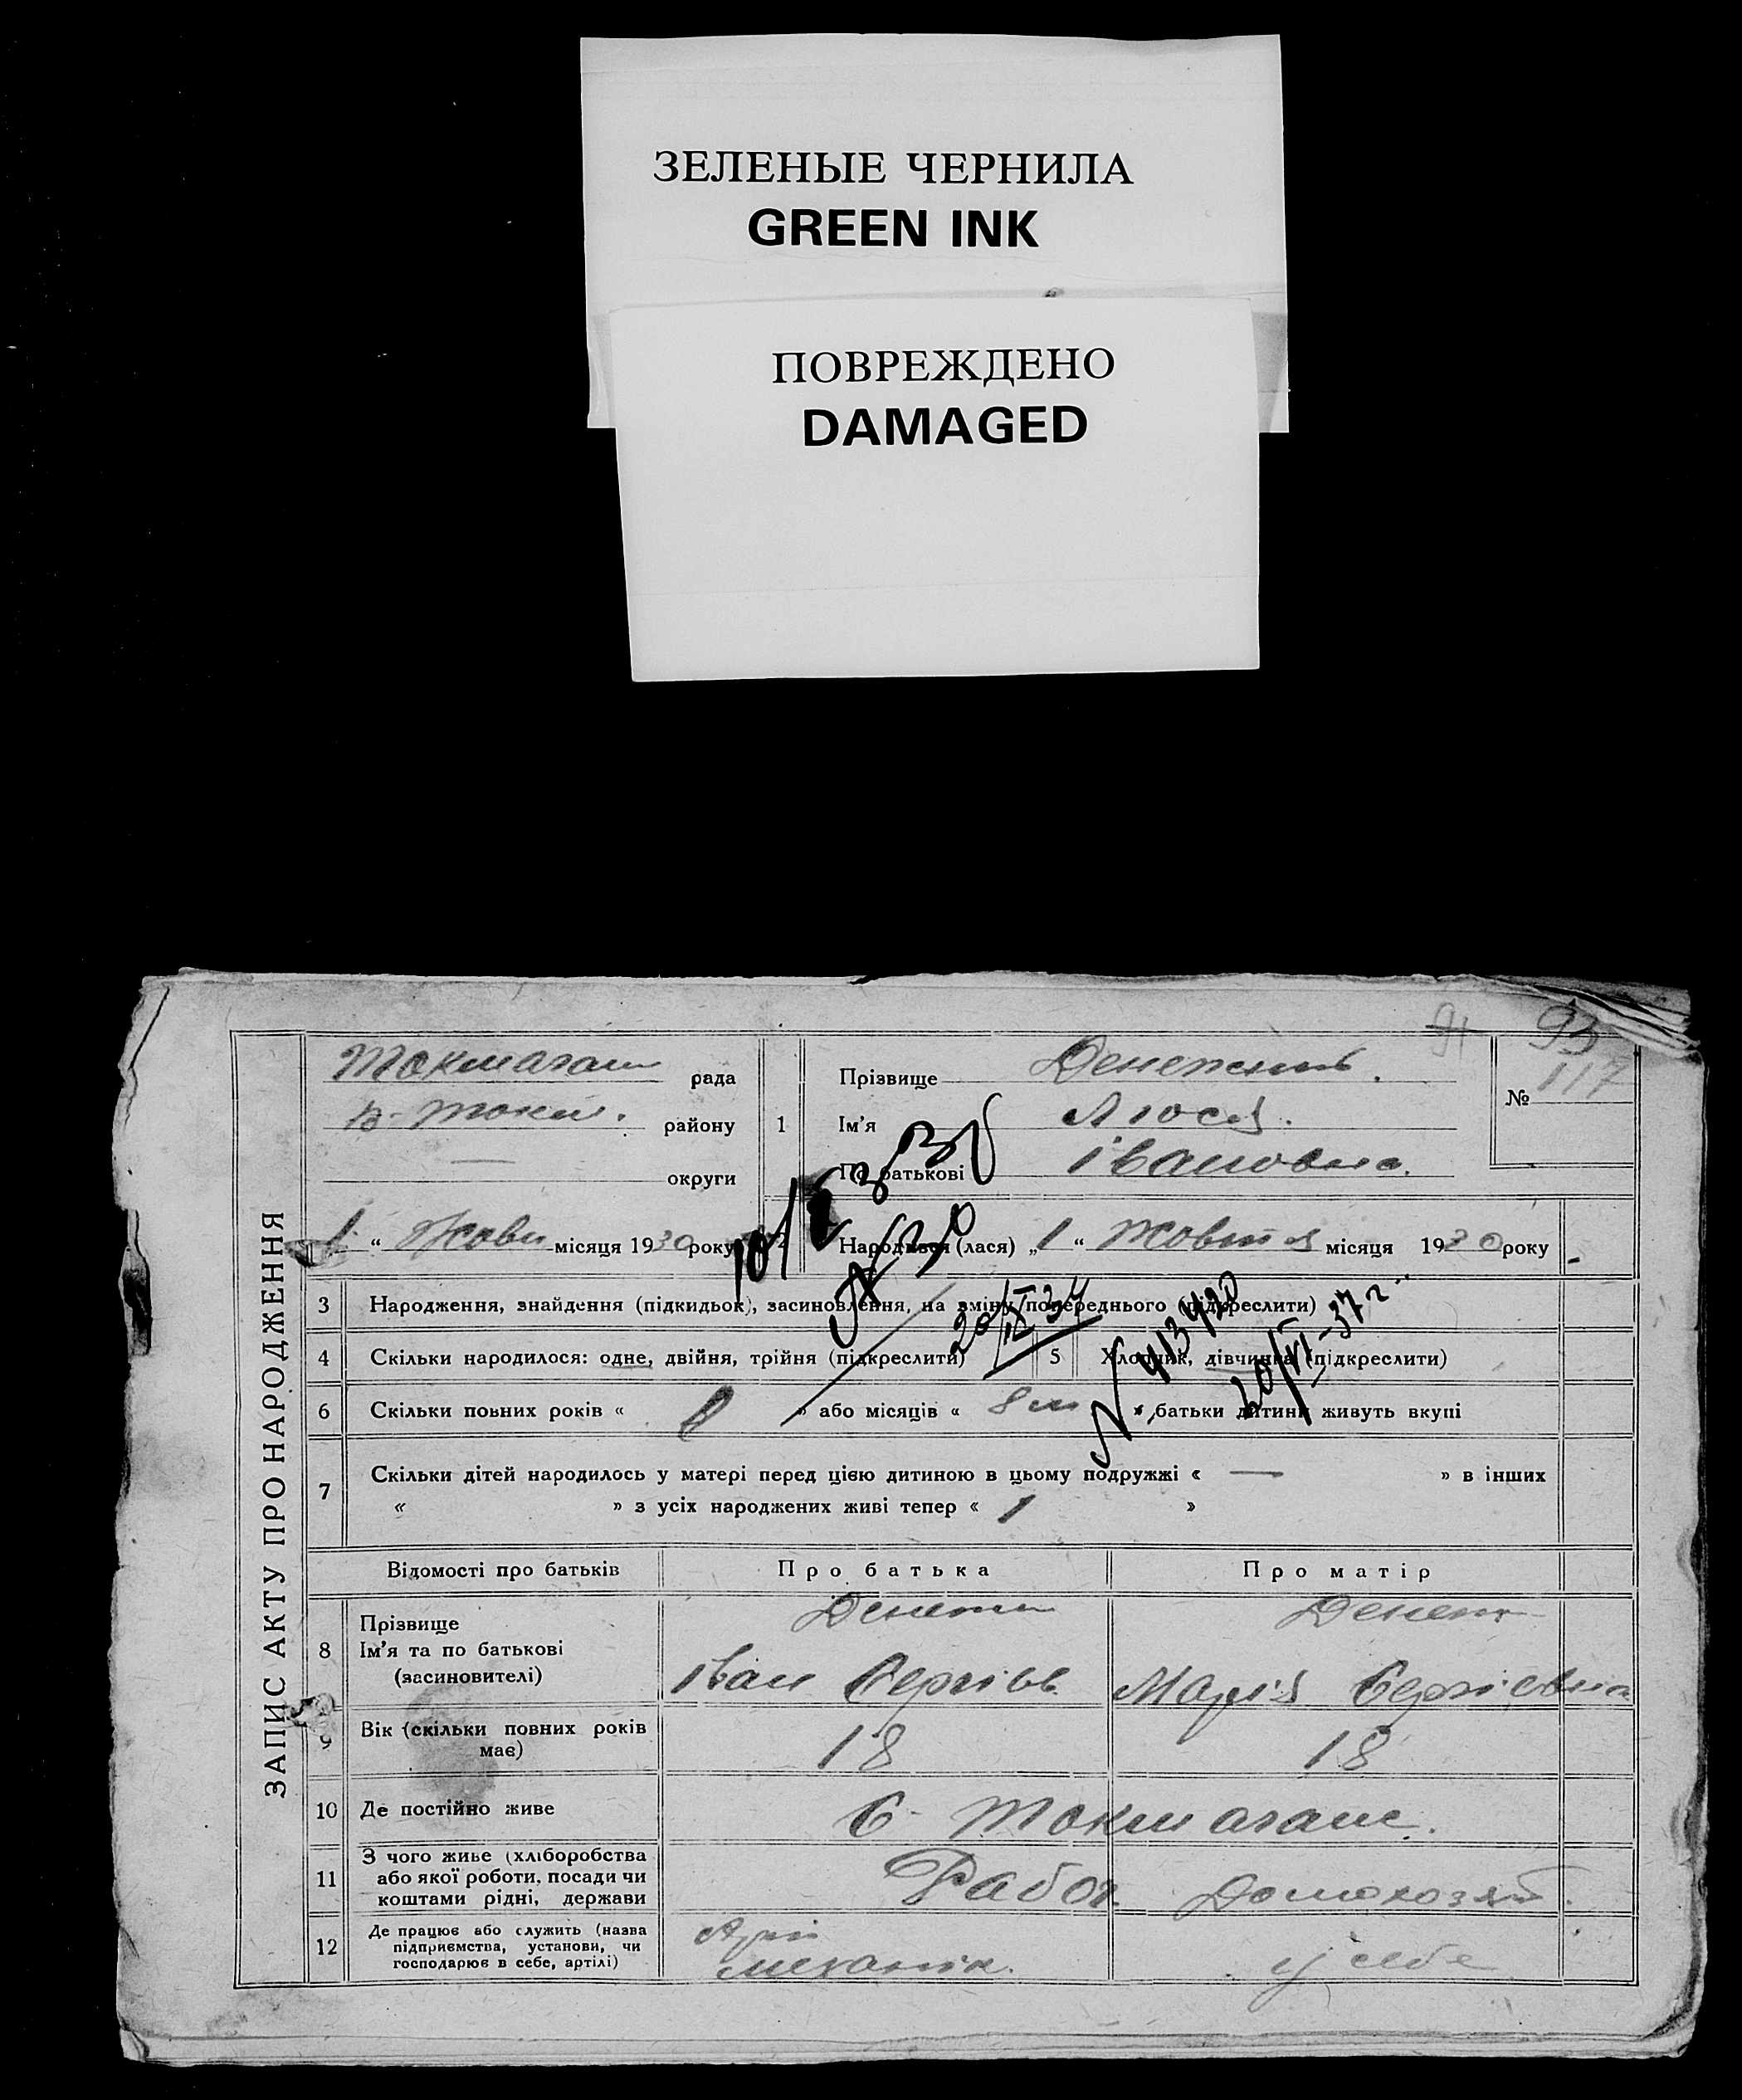 ЗЕЛЕНЫЕ ЧЕРНИЛА
GREEN INK
ПОВРЕЖДЕНО
DAMAGED
91 95
ЗАПИС АКТУ ПРО НАРОДЖЕННЯ
рада
району
округи
1
Прізвище
Ім'я Люся.
По батькові Івановна.
№ 117
1 " Жовт місяця 1930 року
2 Народився (лася) „1 " Жовтня місяця 1930 року
3 Народження, знайдення (підкидьок), засиновлення, на зміну попереднього (підкреслити)
20/IX 34
N 413420
20/VI-37 г.
4 Скільки народилося: одне, двійня, трійня (підкреслити)
5 Хлопчик, дівчинка (підкреслити)
6 Скільки повних років « » або місяців « 8 м » батьки дитини живуть вкупі
7 Скільки дітей народилось у матері перед цією дитиною в цьому подружжі « — » в інших
« » з усіх народжених живі тепер « 1 »
Відомості про батьків Про батька Про матір
8 Прізвище
Ім'я та по батькові
(засиновителі)
Іван Сергієв. Марія Сергієвна
9 Вік (скільки повних років має) 18 18
10 Де постійно живе С.
11 З чого живе (хліборобства
або якої роботи, посади чи
коштами рідні, держави
Рабоч. Домохозяй.
12 Де працює або служить (назва
підприємства, установи, чи
господарює в себе, артілі)
механік. у себе